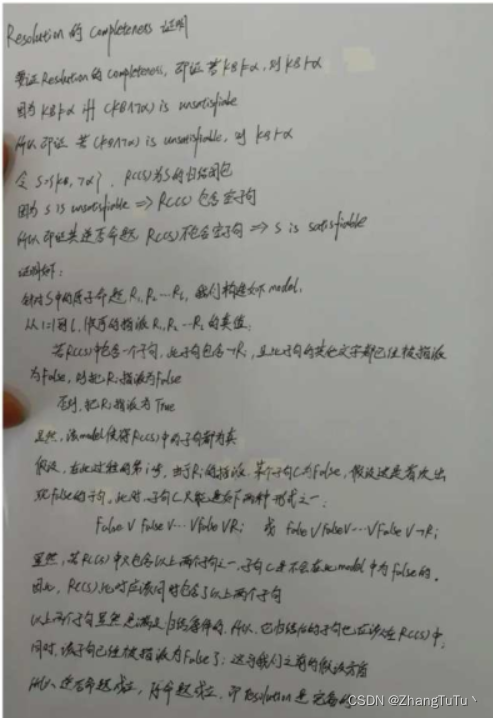 Resolution 的 Completeness 证明
要证Resolution的completeness, 即证 若 KB⊨α, 则 KB⊢α
因为 KB⊨α iff (KB∧¬α) is unsatisfiable
所以 即证 若 (KB∧¬α) is unsatisfiable, 则 KB⊢α
令 S={KB, ¬α}, RC(S)为S的归结闭包
因为 S is unsatisfiable ⇒ RC(S) 包含空子句
所以 即证其逆否命题, RC(S)不包含空子句 ⇒ S is satisfiable
证明如下:
针对S中的原子命题, P₁, P₂ … Pₖ, 我们构建如下model,
从 i=1到 k, 依次的指派 P₁, P₂ … Pₖ 的真值,
若RC(S)中包含一个子句, 此子句包含¬Pᵢ, 且此子句的其他文字都已经被指派
为False, 则把 Pᵢ 指派为False
否则, 把 Pᵢ 指派为 True
显然, 该model使得 RC(S) 中的子句都为真
假设, 在此过程的第i步, 由于Pᵢ的指派, 某个子句C为False, 假设这是首次出
现false的子句, 此时, 子句C只能是如下两种形式之一:
False ∨ False ∨ … ∨ False ∨ Pᵢ 或 False ∨ False ∨ … ∨ False ∨ ¬Pᵢ
显然, 若RC(S) 中只包含以上两个子句之一, 子句C是不会在此model中为false的,
因此, RC(S) 此时应该同时包含了以上两个子句
以上两个子句显然是满足归结条件的, 所以, 它归结后的子句也应该在RC(S)中,
同时, 该子句已经被指派为False了; 这与我们之前的假设矛盾
所以, 逆否命题成立, 原命题成立, 即Resolution是完备的
CSDN @ZhangTuTu丶